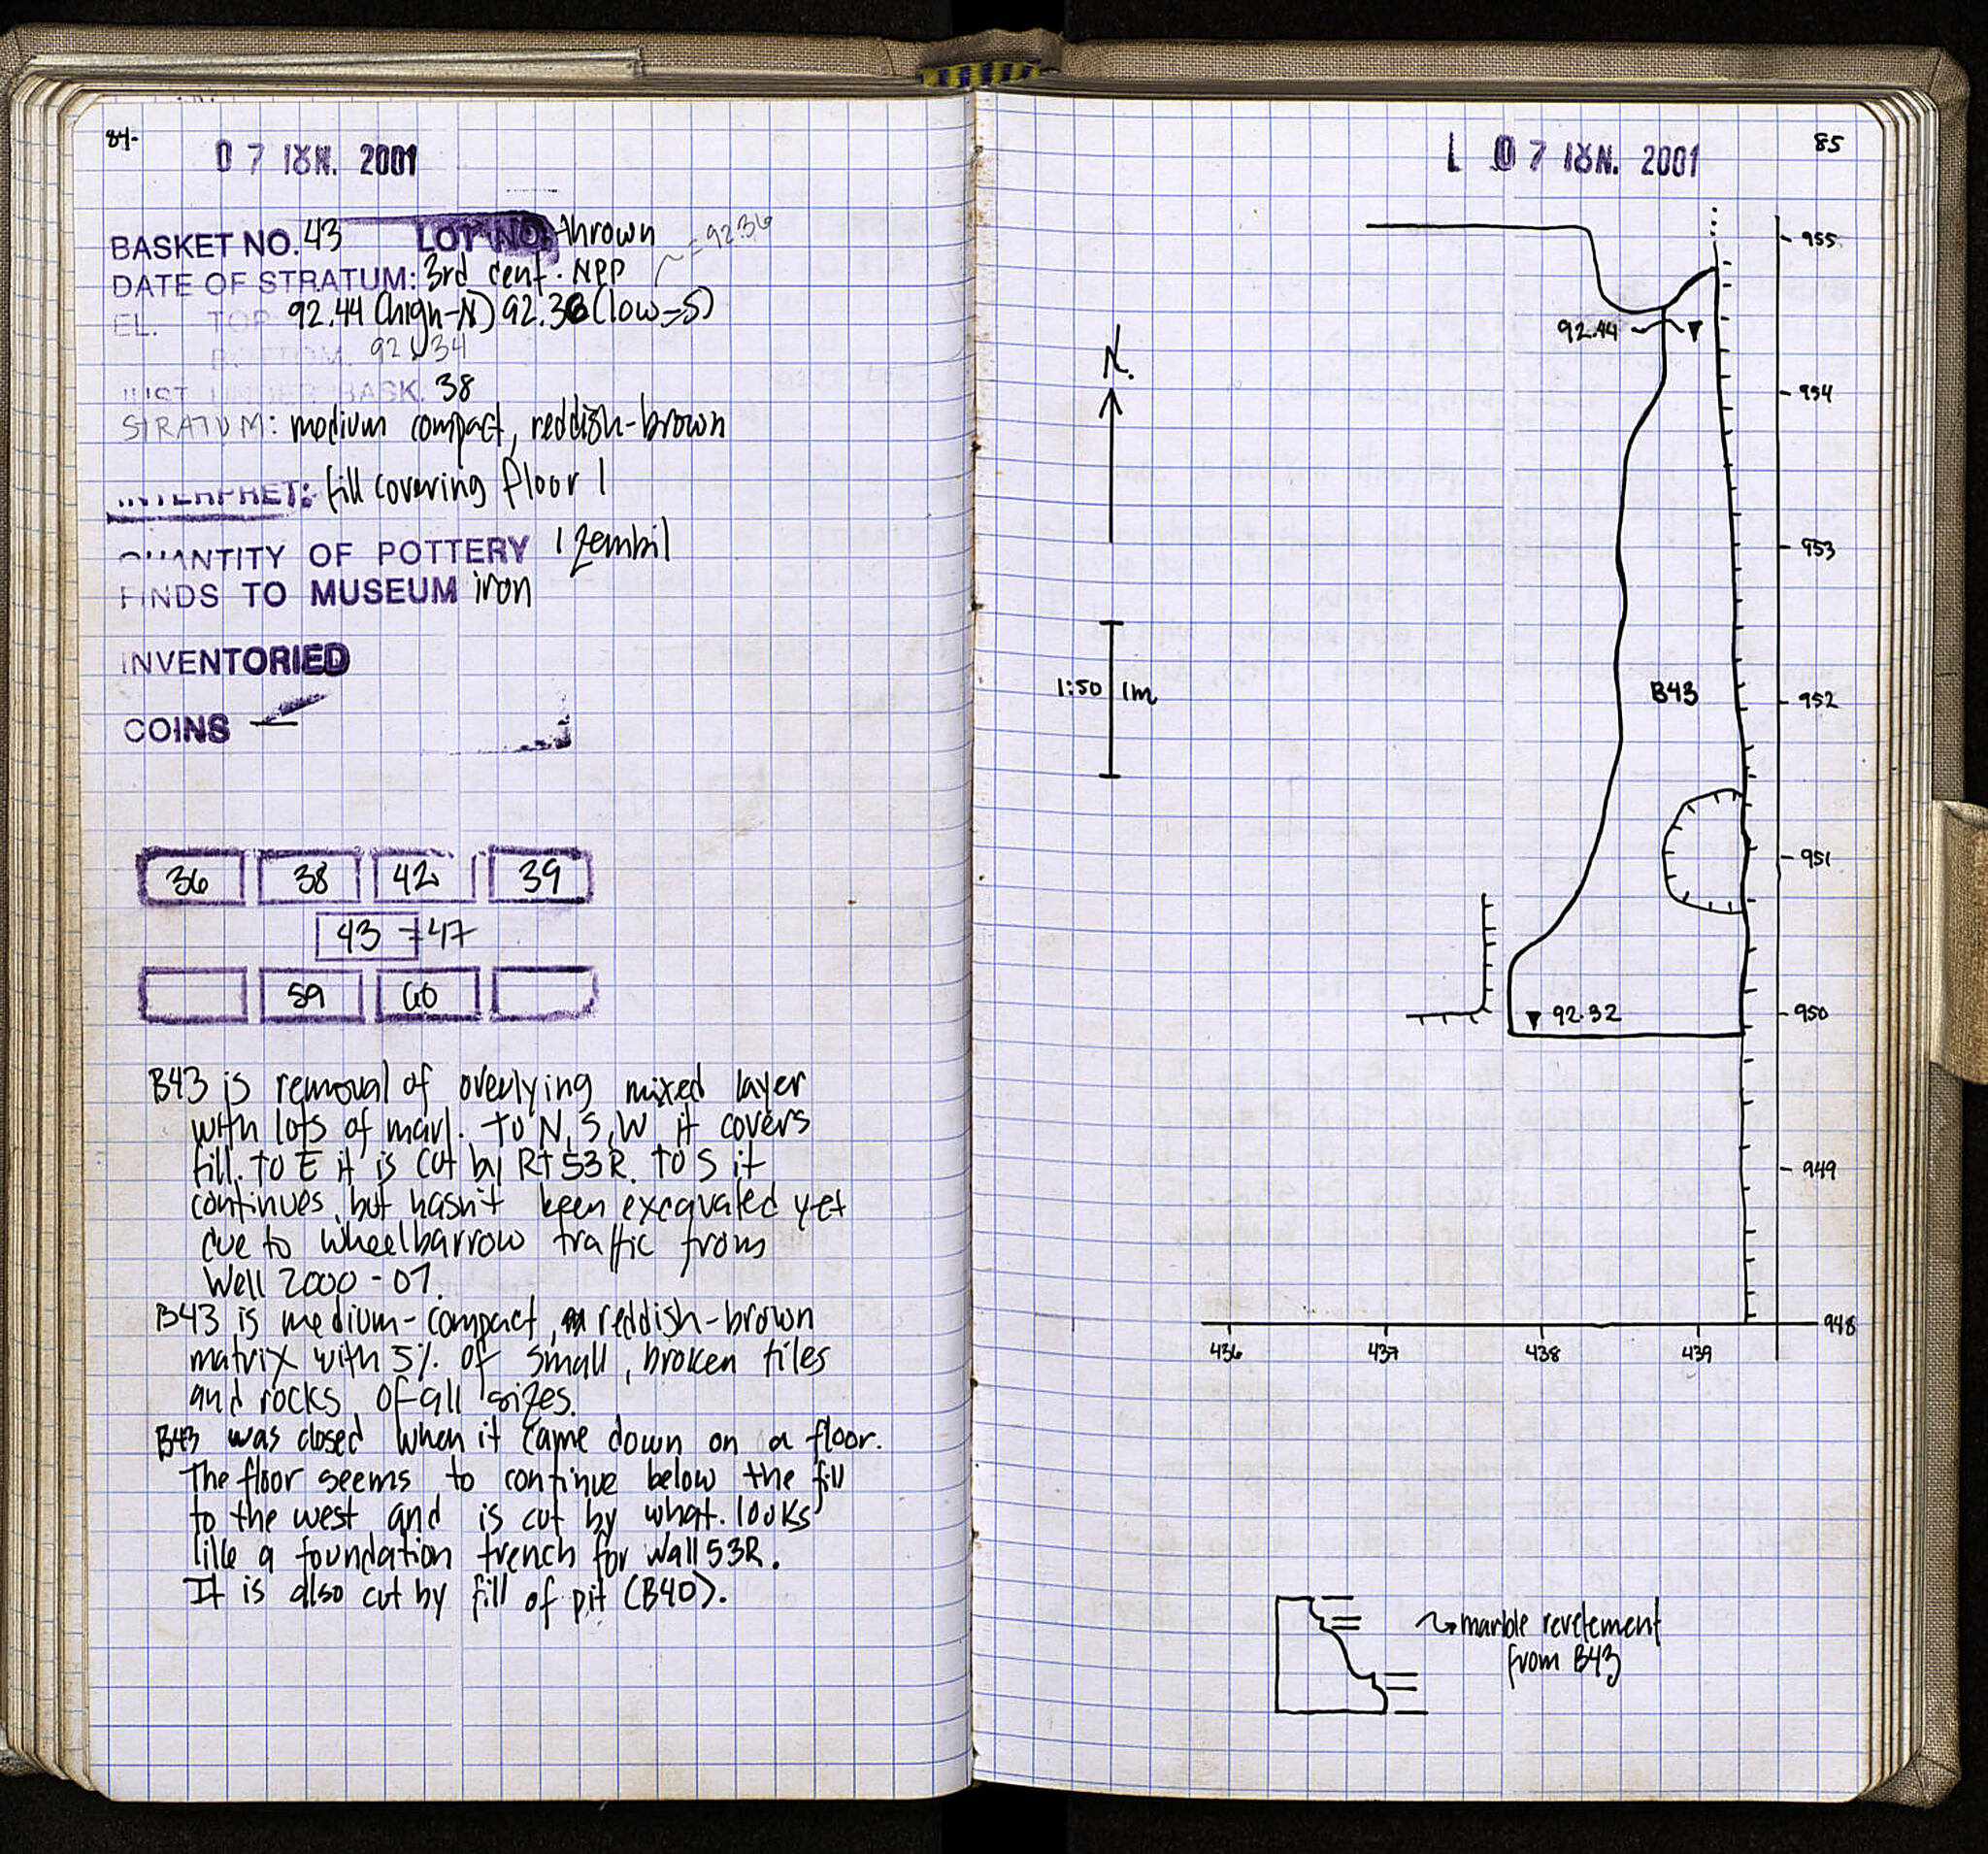 84.
07 ΙΟΥΝ. 2001
BASKET NO. 43 LOT NO. thrown
92.36
DATE OF STRATUM: 3rd cent. NPP
EL. TOP 92.44 (high-N) 92.36 (low-S)
BOTTOM. 92.34
JUST UNDER BASK. 38
STRATUM: medium compact, reddish-brown
INTERPRET: fill covering floor 1
QUANTITY OF POTTERY 1 zembil
FINDS TO MUSEUM iron
INVENTORIED
COINS —
36 38 42 39
43 =47
59 60
B43 is removal of overlying mixed layer
with lots of marl. To N, S, W it covers
fill. To E it is cut by RT 53R. To S it
continues, but hasn't been excavated yet
due to wheelbarrow traffic from
Well 2000-01.
B43 is medium-compact, reddish-brown
matrix with 5% of small, broken tiles
and rocks of all sizes.
B43 was closed when it came down on a floor.
The floor seems to continue below the fill
to the west and is cut by what looks
like a foundation trench for Wall 53R.
It is also cut by fill of pit (B40).
85
07 ΙΟΥΝ. 2001
955
92.44
N.
954
953
1:50 1m
B43
952
951
92.32
950
949
948
436 437 438 439
marble revetement
from B43